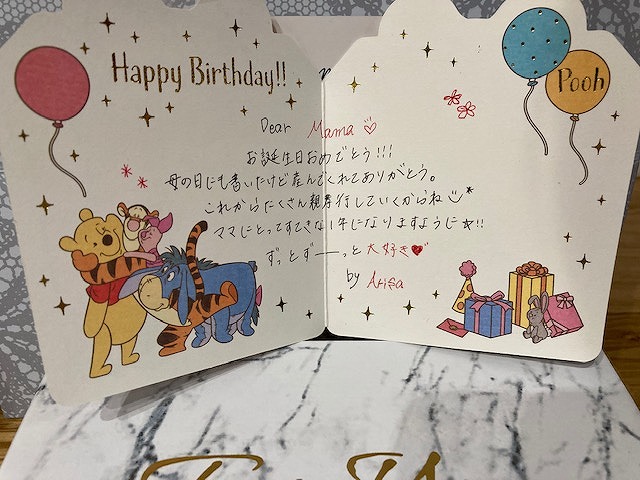 Happy Birthday!!
Pooh
Dear Mama♡
お誕生日おめでとう!!!
母の日にも書いたけど産んでくれてありがとう。
これからたくさん親孝行していくからね
ママにとってすてきな1年になりますように☆!!
ずっとずーーっと大好き♥
by Arisa